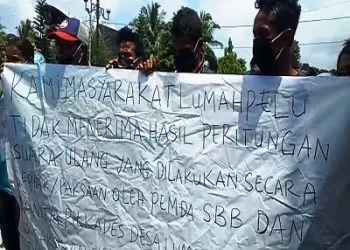 KAMI MASYARAKAT LUMAHPELU
TIDAK MENERIMA HASIL PERITUNGAN
SUARA ULANG YANG DILAKUKAN SECARA
/PAKSAAN OLEH PEMDA SBB DAN
PILKADES DESA LUMA